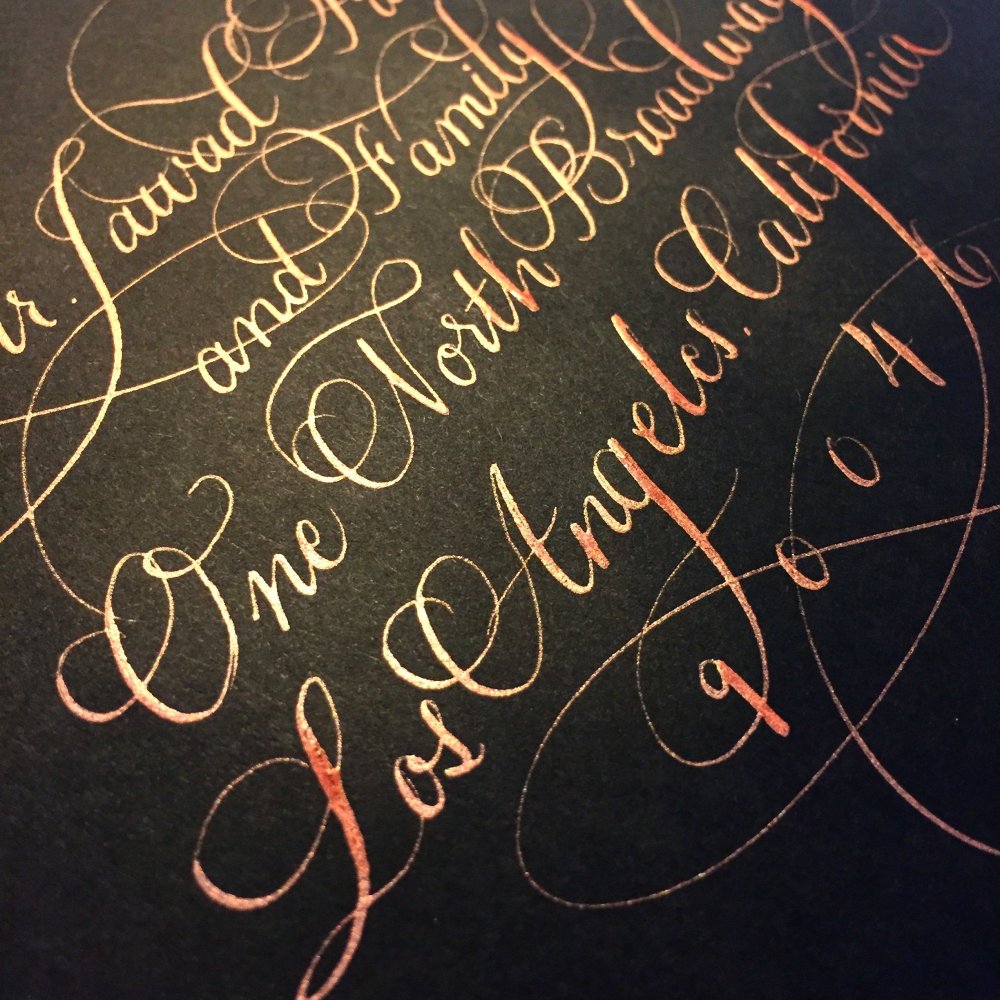 Mr. Jawad
and Family
One North Broadway
Los Angeles. California
90046